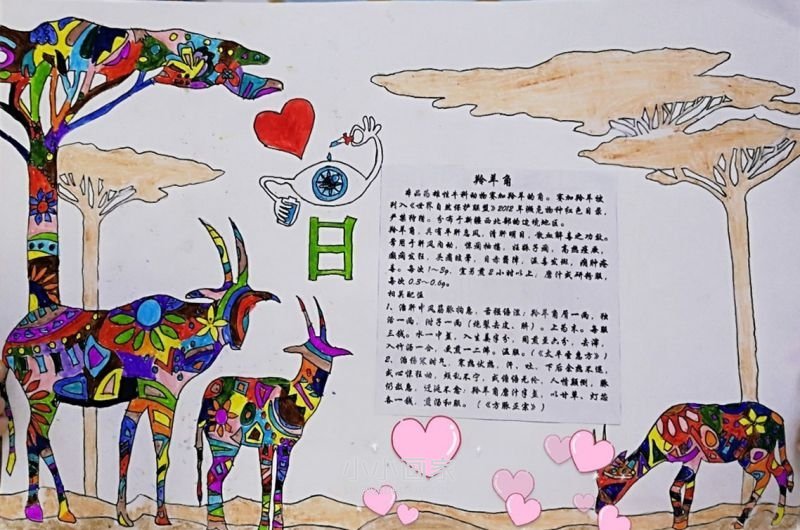 日
羚羊角
本品为雄性牛科动物赛加羚羊的角。赛加羚羊被
列入《世界自然保护联盟》2012年濒危物种红色目录,
严禁狩猎。分布于新疆西北部的边境地区。
羚羊角,具有平肝息风,清肝明目,散血解毒之功效。
常用于肝风内动,惊痫抽搐,妊娠子痫,高热痉厥,
癫痫发狂,头痛眩晕,目赤翳障,温毒发斑,痈肿疮
毒。每次1~3g,宜另煎2小时以上;磨汁或研粉服,
每次0.3~0.6g。
相关配伍
1、治肝中风筋脉拘急,舌强语涩:羚羊角屑一两,独
活一两,附子一两(炮裂去皮、脐)。上为末。每服
三钱。水一中盏,入生姜半分,同煎至六分,去滓,
入竹沥一合,更煎一二沸,温服。(《太平圣惠方》)
2、治伤寒时气,寒热伏热,汗、吐、下后余热不退,
或心惊狂动,烦乱不宁,或谵语无伦,人情颠倒,脉
仍数急,迁延不愈:羚羊角磨汁半盏,以甘草、灯芯
各一钱,煎汤和服。(《方脉正宗》)